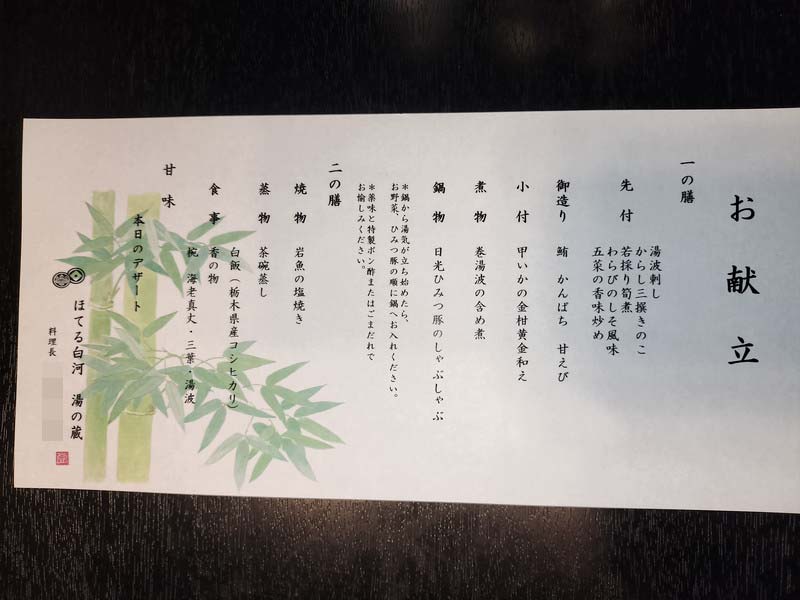 お献立
一の膳
先付
湯波刺し
からし三撰きのこ
若採り筍煮
わらびのしそ風味
五菜の香味炒め
御造り 鮪 かんぱち 甘えび
小付 甲いかの金柑黄金和え
煮物 巻湯波の含め煮
鍋物 日光ひみつ豚のしゃぶしゃぶ
*鍋から湯気が立ち始めたら、
お野菜、ひみつ豚の順に鍋へお入れください。
*薬味と特製ポン酢またはごまだれで
お愉しみください。
二の膳
焼物 岩魚の塩焼き
蒸物 茶碗蒸し
食事
白飯(栃木県産コシヒカリ)
香の物
椀 海老真丈・三葉・湯波
甘味
本日のデザート
ほてる白河 湯の蔵
料理長